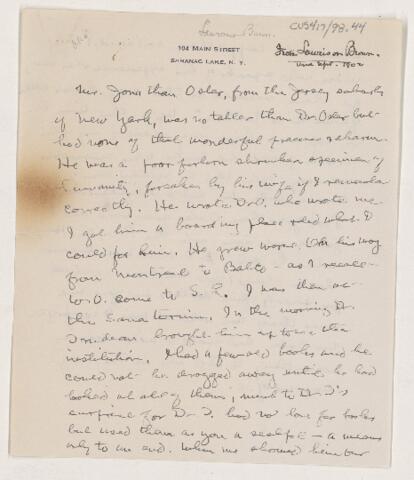 Lawrason Brown.
CUS417/98.44
104 MAIN STREET
SARANAC LAKE, N. Y.
From Lawrason Brown.
Mr. Jonathan Osler, from the Jersey suburbs
of New York, was no taller than Dr Osler but
had none of that wonderful presence & charm.
He was a poor forlorn shrunken specimen of
humanity, forsaken by his wife if I remember
correctly. He wrote Dr O. who wrote me.
I got him a boarding place & did what I
could for him. He grew worse. On his way
from Montreal to Balto - as I recall
W.O. came to S. L. I was then at
the Sanatorium. In the morning Dr.
Trudeau brought him up to see the
institution. I had a few old books and he
could not be dragged away until he had
looked at all of them, much to Dr. T's
surprise for Dr. T. had no love for books
but used them as you a scalpel - a means
only to an end. When we showed him our